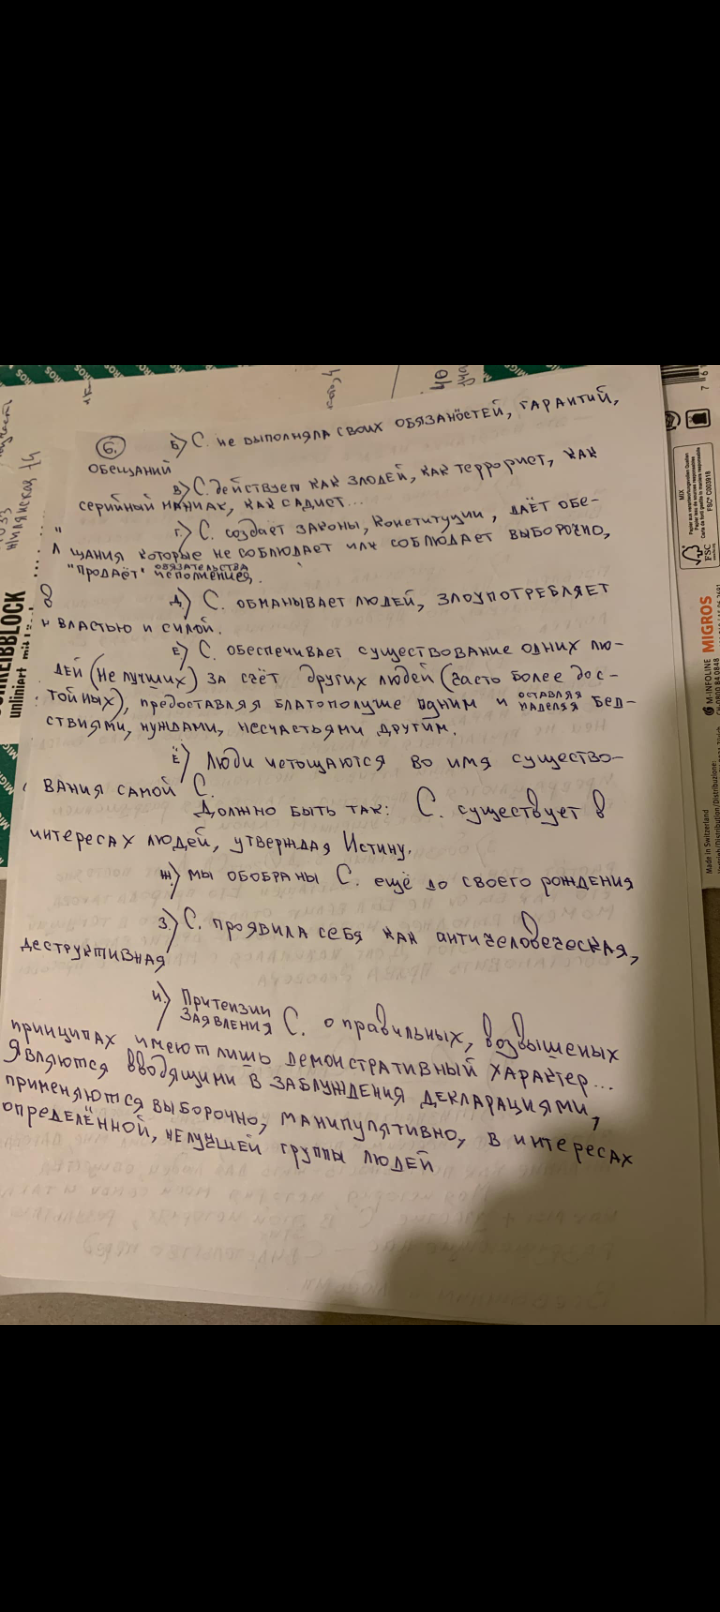 6. б) С. не выполняла своих обязаностей, гарантий,
обещаний
в) С. действует как злодей, как террорист, как
серийный маниак, как садист...
г) С. создаёт законы, конституции, даёт обе-
щания которые не соблюдает или соблюдает выборочно,
"продаёт" обязательства исполнения.
д) С. обманывает людей, злоупотребляет
властью и силой.
е) С. обеспечивает существование одних лю-
дей (не лучших) за счёт других людей (часто более дос-
тойных), предоставляя благополучие одним и оставляя наделяя бед-
ствиями, нуждами, несчастьями другим.
ё) Люди истощаются во имя существо-
вания самой С.
Должно быть так: С. существует в
интересах людей, утверждая Истину.
ж.) мы обобраны С. ещё до своего рождения
з.) С. проявила себя как античеловеческая,
деструктивная
и.) Притензии Заявления С. о правильных, возвышеных
принципах имеют лишь демонстративный характер...
Являются вводящими в заблуждения декларациями,
применяются выборочно, манипулятивно, в интересах
определённой, нелучшей группы людей
SCHREIBBLOCK
MIGROS
MIGROS
M-INFOLINE
Made in Switzerland
MIX
FSC